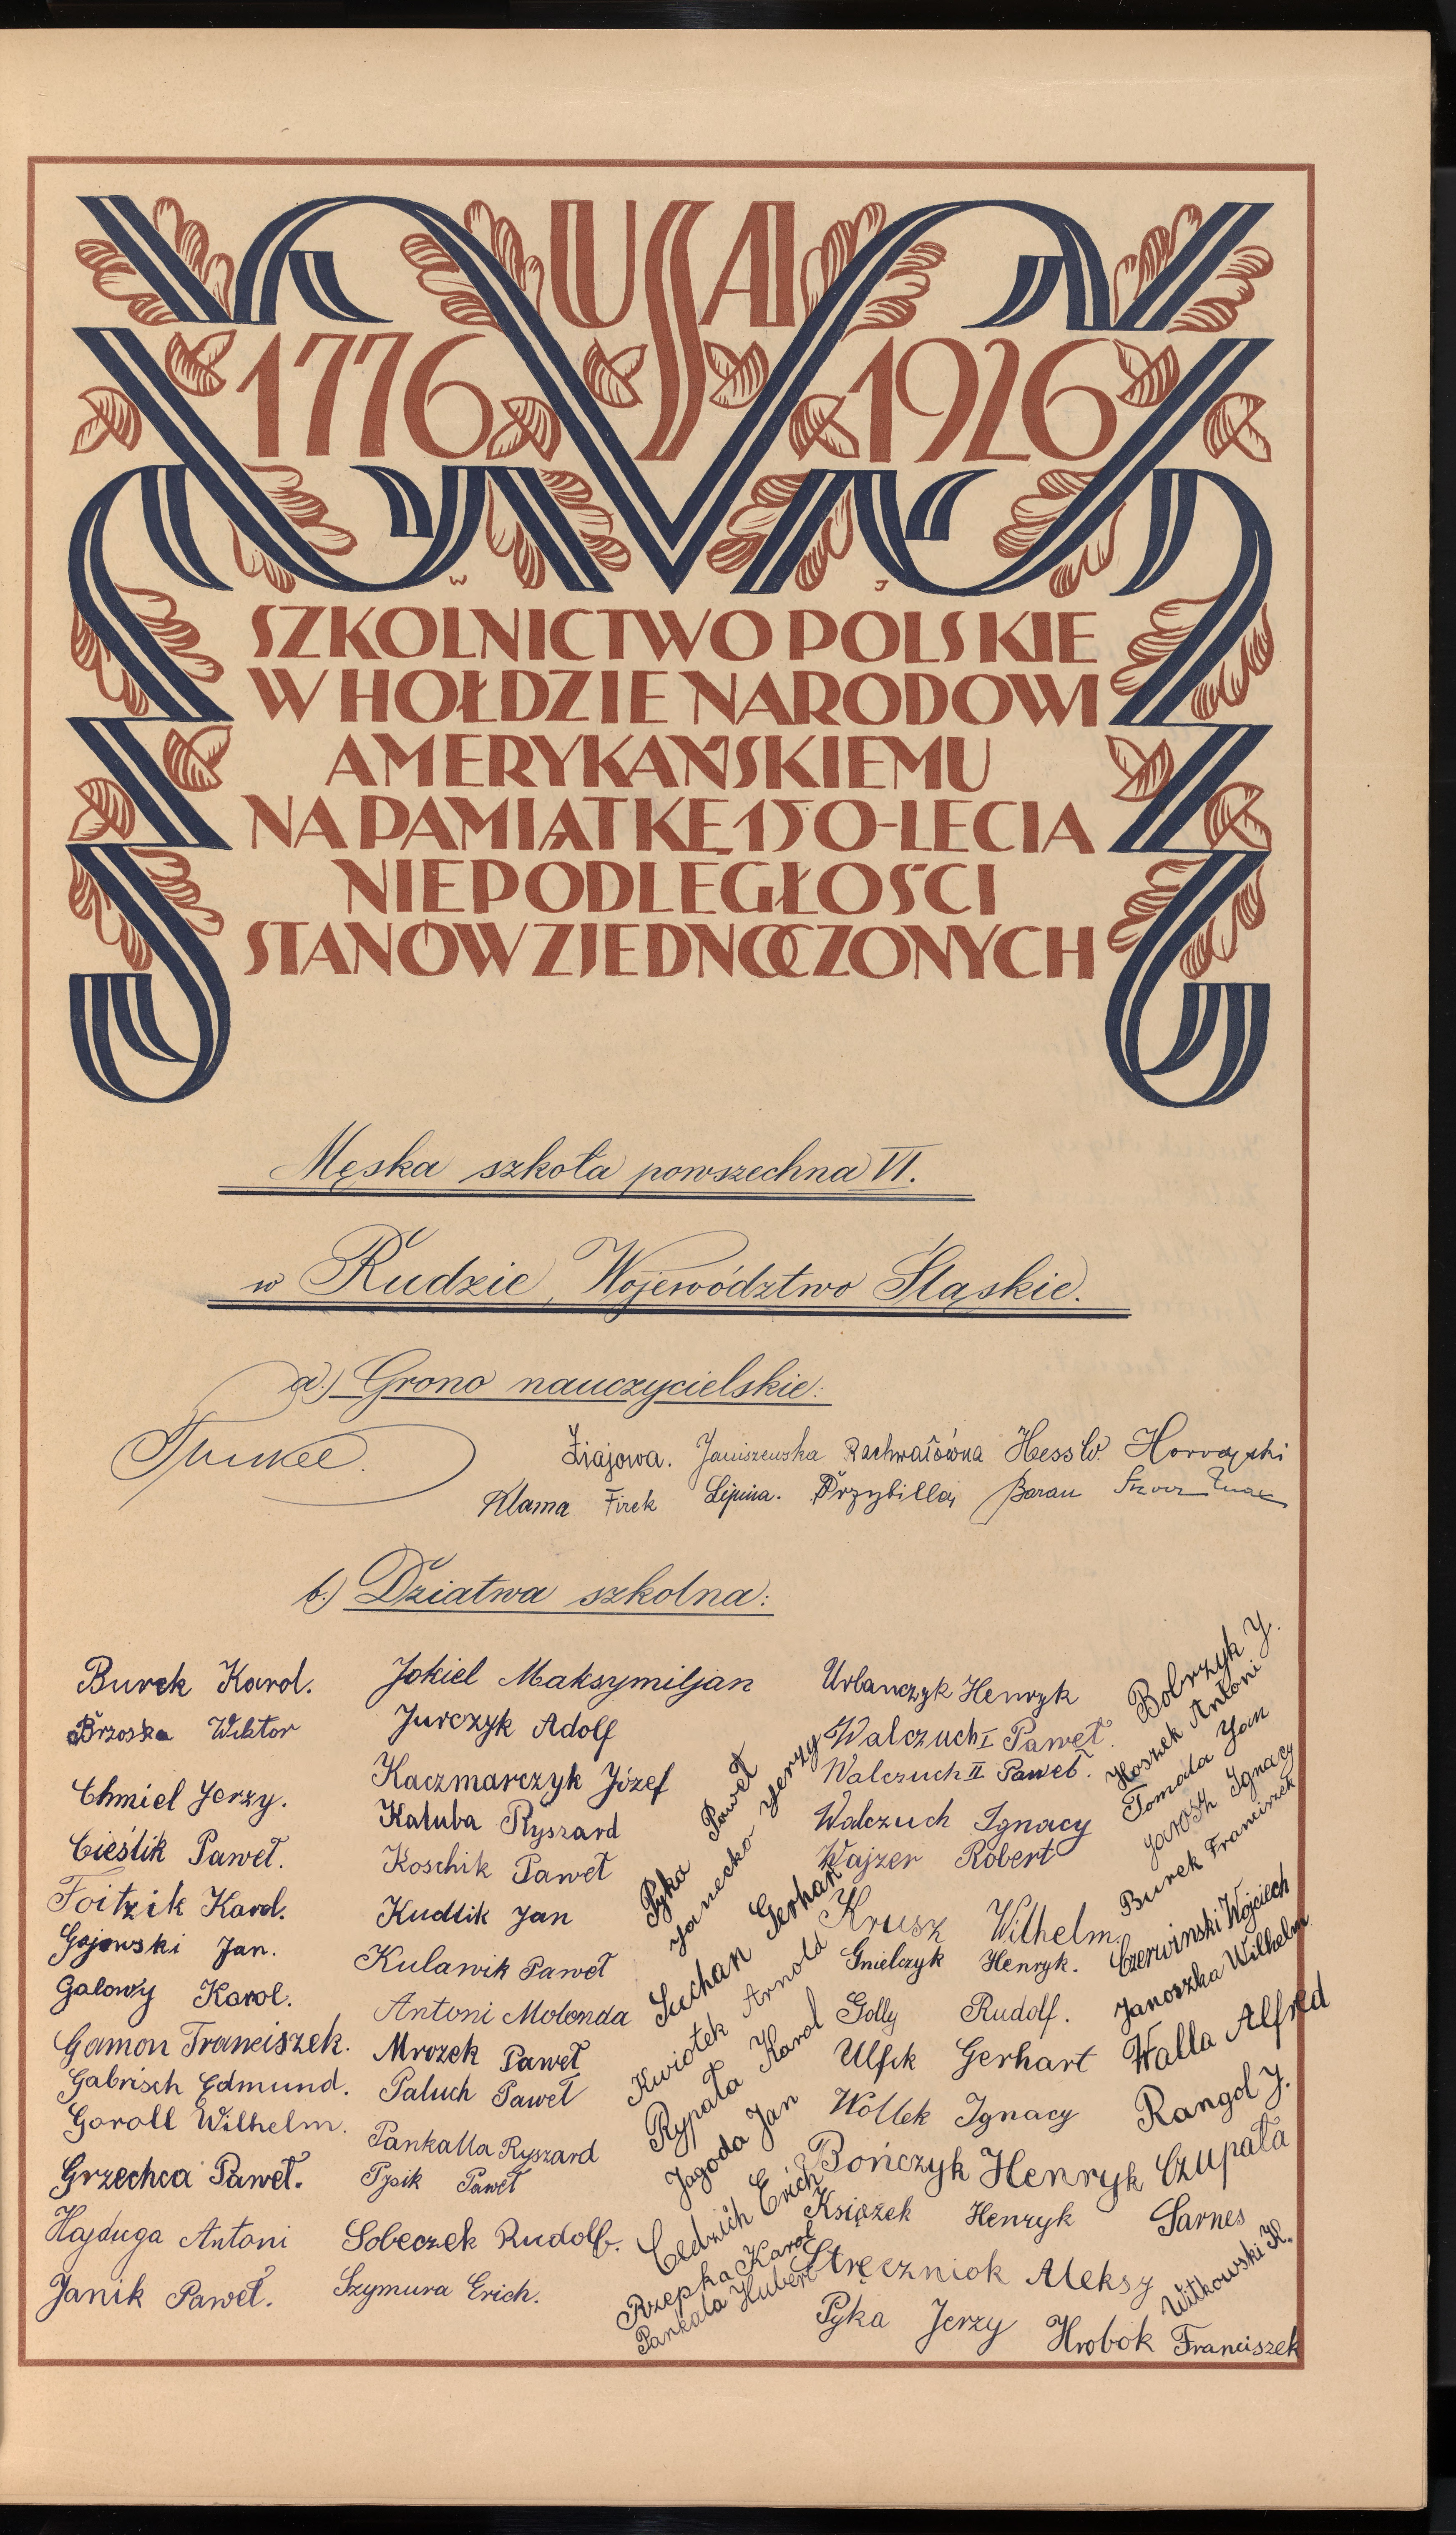 USA
1776 1926
W J
SZKOLNICTWO POLSKIE
W HOŁDZIE NARODOWI
AMERYKAŃSKIEMU
NA PAMIĄTKĘ 150-LECIA
NIEPODLEGŁOŚCI
STANÓW ZJEDNOCZONYCH
Męska szkoła powszechna VI.
w Rudzie, Województwo Śląskie.
a.) Grono nauczycielskie:
Ziajowa. Janiszewska Rachwałówna Hess W.
Klama Firek Lipina. Przybilla, Baran
b.) Dziatwa szkolna:
Burek Karol.
Brzoska Wiktor
Chmiel Jerzy.
Cieślik Paweł.
Foitzik Karol.
Gajowski Jan.
Galowy Karol.
Gamon Franciszek.
Gabrisch Edmund.
Goroll Wilhelm.
Grzechca Paweł.
Hajduga Antoni
Janik Paweł.
Jokiel Maksymiljan
Jurczyk Adolf
Kaczmarczyk Józef
Kałuba Ryszard
Koschik Paweł
Kudlik Jan
Kulawik Paweł
Antoni Molenda
Mrozek Paweł
Paluch Paweł
Pankalla Ryszard
Pysik Paweł
Sobeczek Rudolf.
Szymura Erich.
Pyka Paweł
Janecko Jerzy
Suchan Gerhard
Kwiotek Arnold
Rypała Karol
Jagoda Jan
Cedzich Erich
Rzepka Karol
Pankala Hubert
Urbanczyk Henryk
Walczuch I Paweł.
Walczuch II Paweł.
Walczuch Ignacy
Wajzer Robert
Krusz Wilhelm.
Gnielczyk Henryk.
Golly Rudolf.
Ulfik Gerhart
Wollek Ignacy
Bończyk Henryk
Książek Henryk
Stręczniok Aleksy
Pyka Jerzy
Hrobok Franciszek
Bobrzyk J.
Hoszek Antoni
Tomala Jan
Jarosz Ignacy
Burek Franciszek
Czerwinski Wojciech
Janoszka Wilhelm
Walla Alfred
Rangol J.
Czupała
Sarnes
Witkowski K.